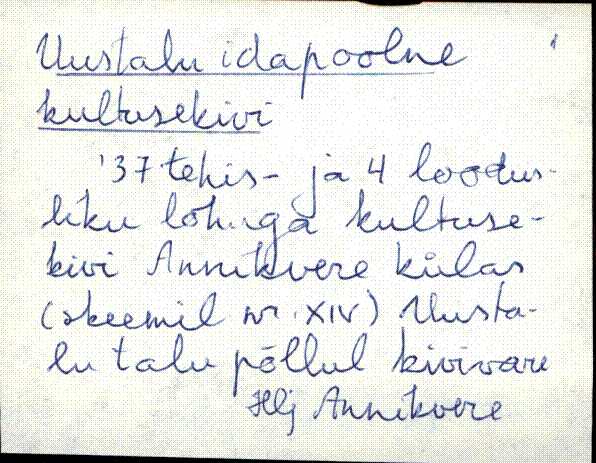 Uustalu idapoolne
kultusekivi
37 tehis- ja 4 loodus-
liku lohuga kultuse-
kivi Annikvere külas
(skeemil nr XIV) Uusta-
lu talu põllul kivivare
Hlj Annikvere